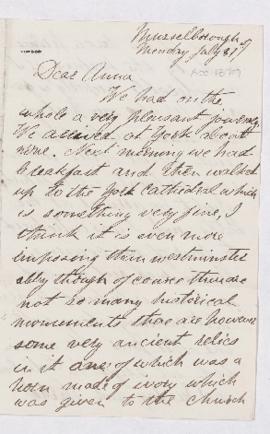 Musselborough
Monday July 8th
Acc 18709
Dear Anna
We had on the
whole a very pleasant journey
We arrived at York about
nine. Next morning we had
breakfast and then walked
up to the York Cathedral which
is something very fine, I
think it is even more
imposing than westminster
abby though of course there are
not so many historical
monuments there are however
some very ancient relics
in it one of which was a
horn made of ivory which
was given to the Church